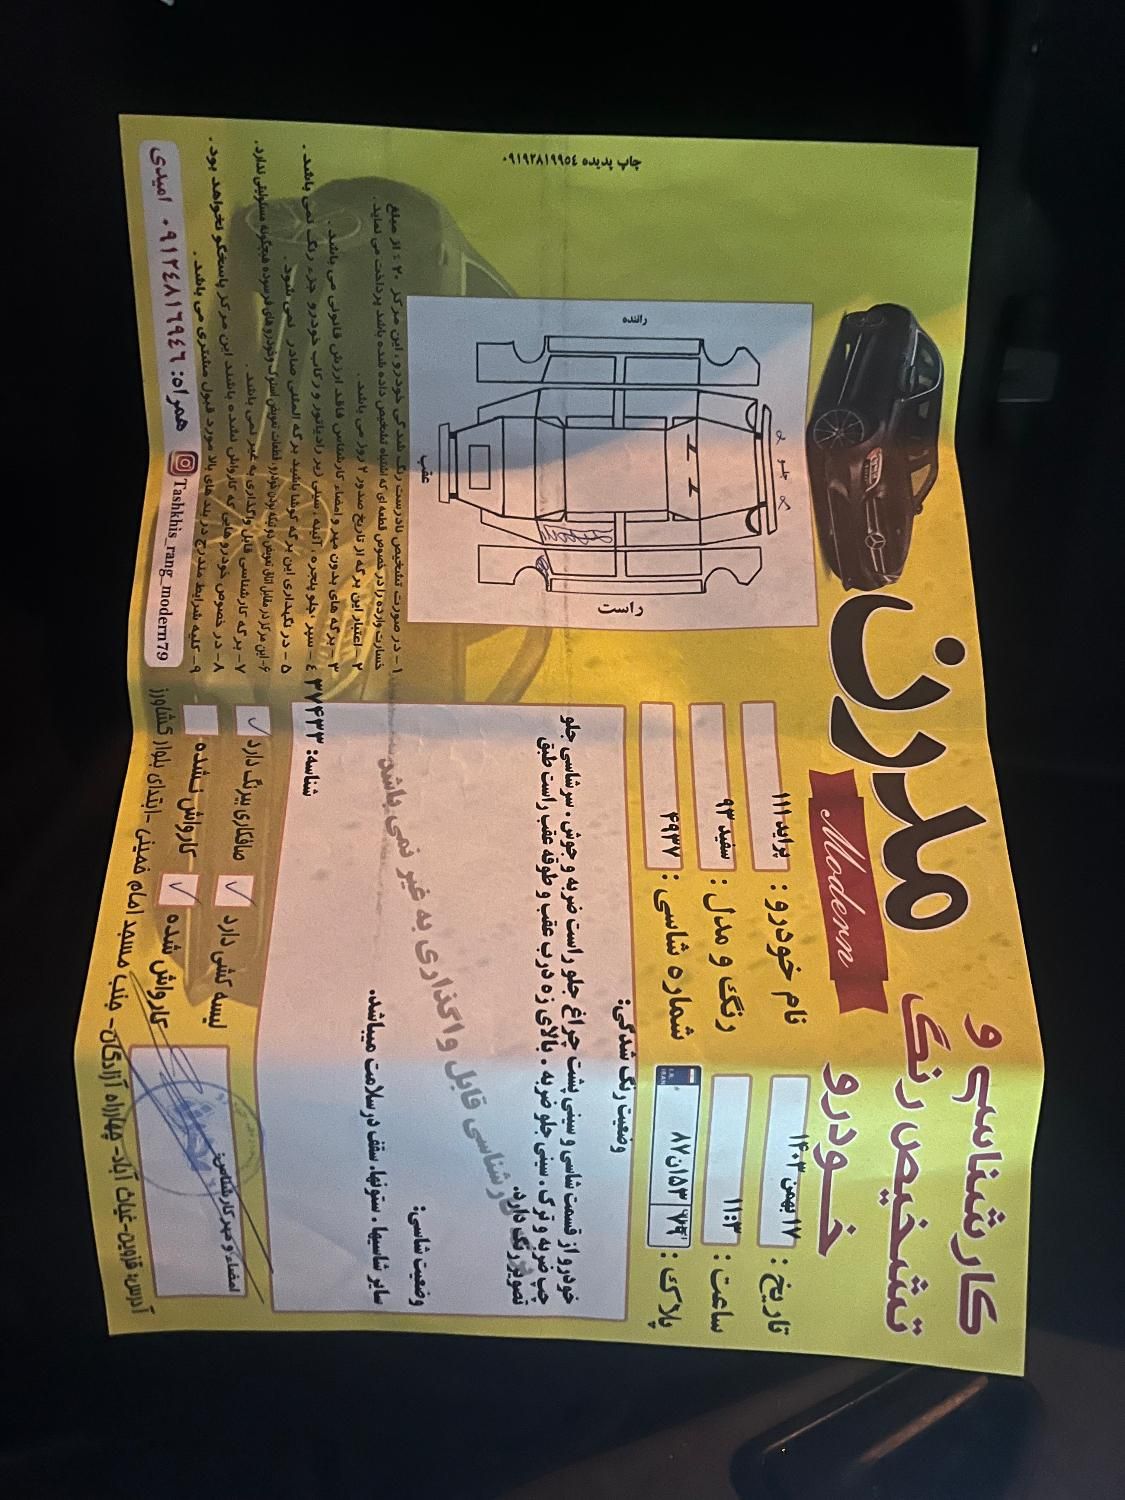 کارشناسی و
تشخیص رنگ
خودرو
مدرن
Modern
نام خودرو: پراید ۱۱۱
تاریخ: ۱۷ بهمن ۱۴۰۳
رنگ و مدل: سفید ۹۳
ساعت: ۱۱:۳
شماره شاسی: ۴۹۳۷
پلاک:
I.R.
IRAN
۸۷ن۱۵۳
۷۹
وضعیت رنگ شدگی:
خودرو از قسمت شاسی و سینی پشت چراغ جلو راست ضربه و جوش . سرشاسی جلو
چپ ضربه و ترک . سینی جلو ضربه . بالای زه درب عقب و طوقه عقب راست طبق
تصویر رنگ دارد.
کارشناسی قابل واگذاری به غیر نمی باشد
وضعیت شاسی:
سایر شاسیها . ستونها. سقف در سلامت میباشد.
شناسه: ۳۷۴۳۳
راننده
جلو
عقب
راست
۱ - در صورت تشخیص نادرست رنگ شدگی خودرو ، این مرکز ۲۰٪ از مبلغ
خسارت وارده را در خصوص قطعه ای که اشتباه تشخیص داده شده باشد پرداخت می نماید .
۲ - اعتبار این برگه از تاریخ صدور ۲ روز می باشد .
۳ - برگه های بدون مهر و امضاء کارشناس فاقد ارزش قانونی می باشد .
۴ - سپر ،جلو پنجره ، آئینه ، سینی زیر رادیاتور و رکاب خودرو جزء رنگ نمی باشد .
۵ - در نگهداری این برگه کوشا باشید برگه المثنی صادر نمی شود .
۶- این مرکز در مقابل اتاق تعویض دو تیکه بودن خودرو، قطعات تعویض استوک وخودروهای فرسوده هیچگونه مسئولیتی ندارد.
۷- برگه کارشناسی قابل واگذاری به غیر نمی باشد .
۸ - در خصوص خودرو هایی که کارواش نشده باشند این مرکز پاسخگو نخواهد بود .
۹ - کلیه شرایط مندرج در بند های بالا مورد قبول مشتری می باشد .
لیسه کشی دارد
صافکاری بیرنگ دارد
کارواش شده
کارواش نشده
امضاء و مهر کارشناس:
همراه: ۰۹۱۲٤۸۱٦۹٤٦ امیدی
Tashkhis_rang_modern79
آدرس: قزوین-غیاث آباد- چهارراه آزادگان- جنب مسجد امام خمینی -ابتدای بلوار کشاورز
چاپ پدیده ۰۹۱۹۲۸۱۹۹٥٤